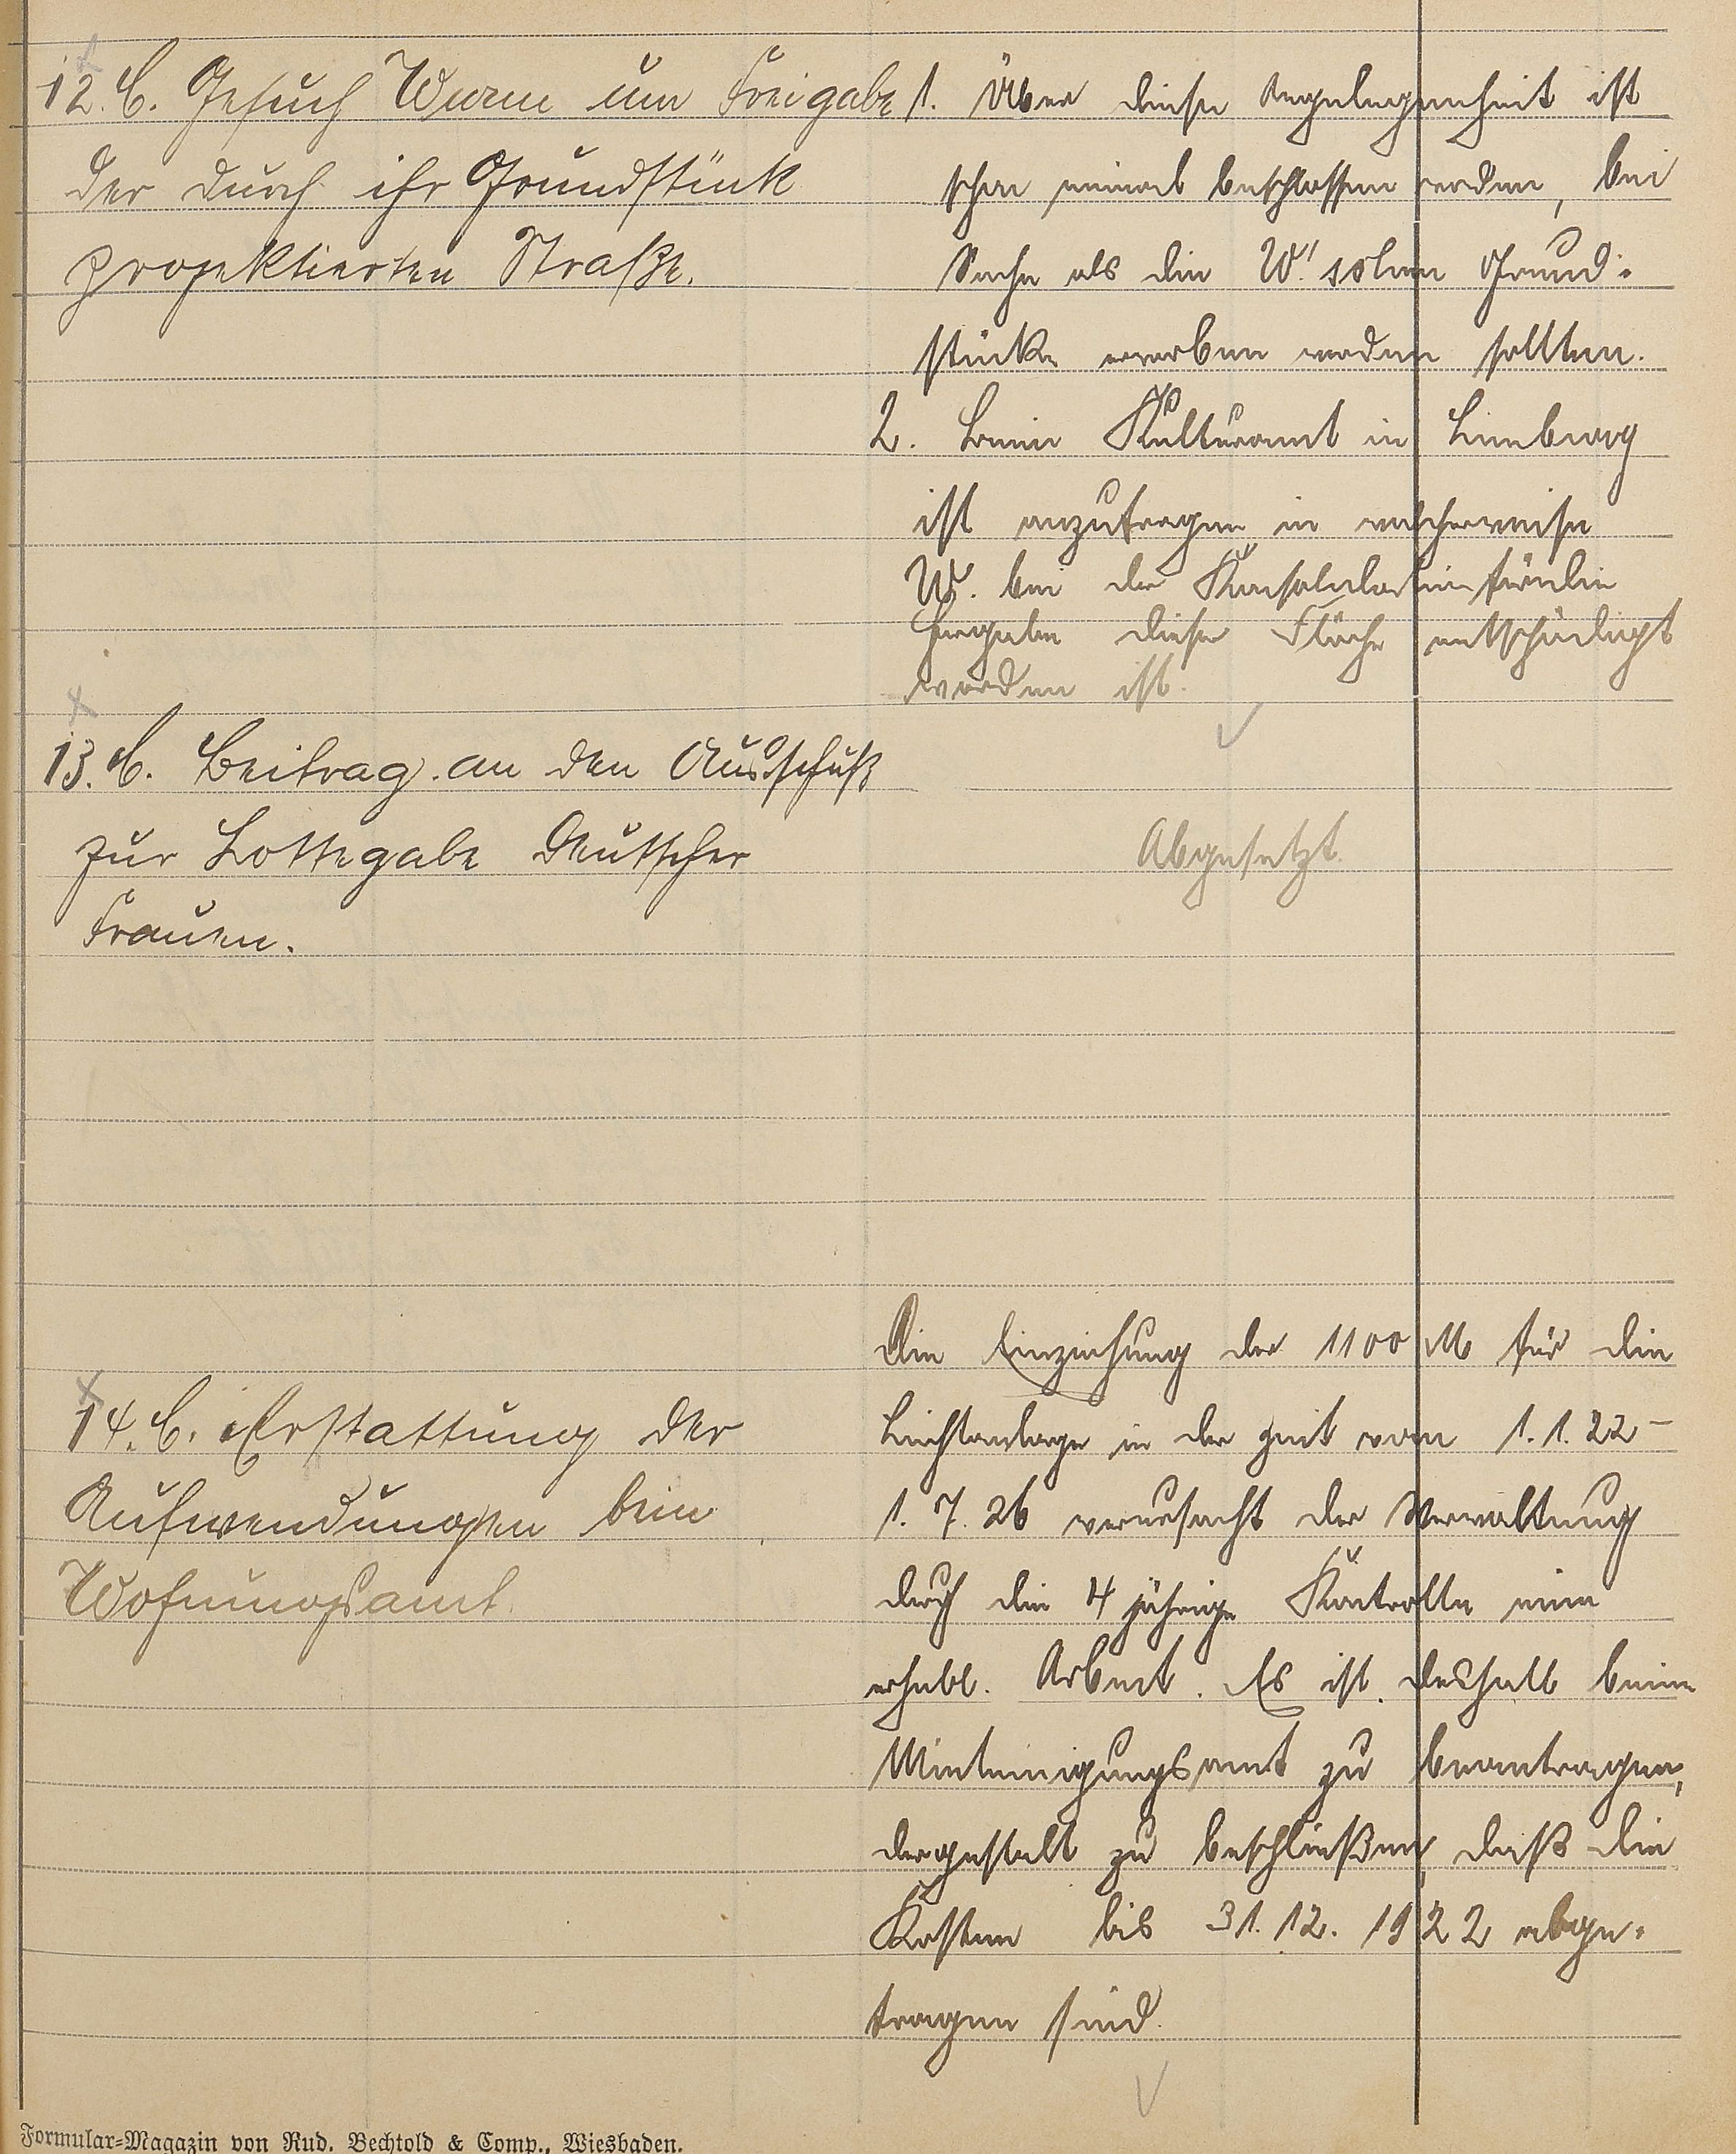 12. C. Gesuch Wurm um Freigabe
der durch ihr Grundstück
projektierten Straße.
1. Über diese Angelegenheit ist
schon einmal beschlossen worden, bei
Sache als die W.'schen Grund-
stücke erworben werden sollten.
2. Beim Kulturamt in Limburg
ist anzufragen in welcherweise
W. bei der Konsolidation für die
Hergabe dieser Fläche entschädigt
worden ist.
13. C. Beitrag an den Ausschuß
zur Lottegabe Deutscher
Frauen.
Abgesetzt.
14. C. Erstattung der
Aufwendungen beim
Wohnungsamt.
Die Einziehung der 1100 M für die
Lichtanlage in der Zeit vom 1.1.22 -
1.7.26 verursacht der Verwaltung
durch die 4 jährige Kontrolle eine
erhebl. Arbeit. Es ist deshalb beim
Mieteinigungsamt zu beantragen,
dergestalt zu beschließen, daß die
Kosten bis 31.12.1922 abge-
tragen sind.
Formular-Magazin von Rud. Bechtold & Comp., Wiesbaden.